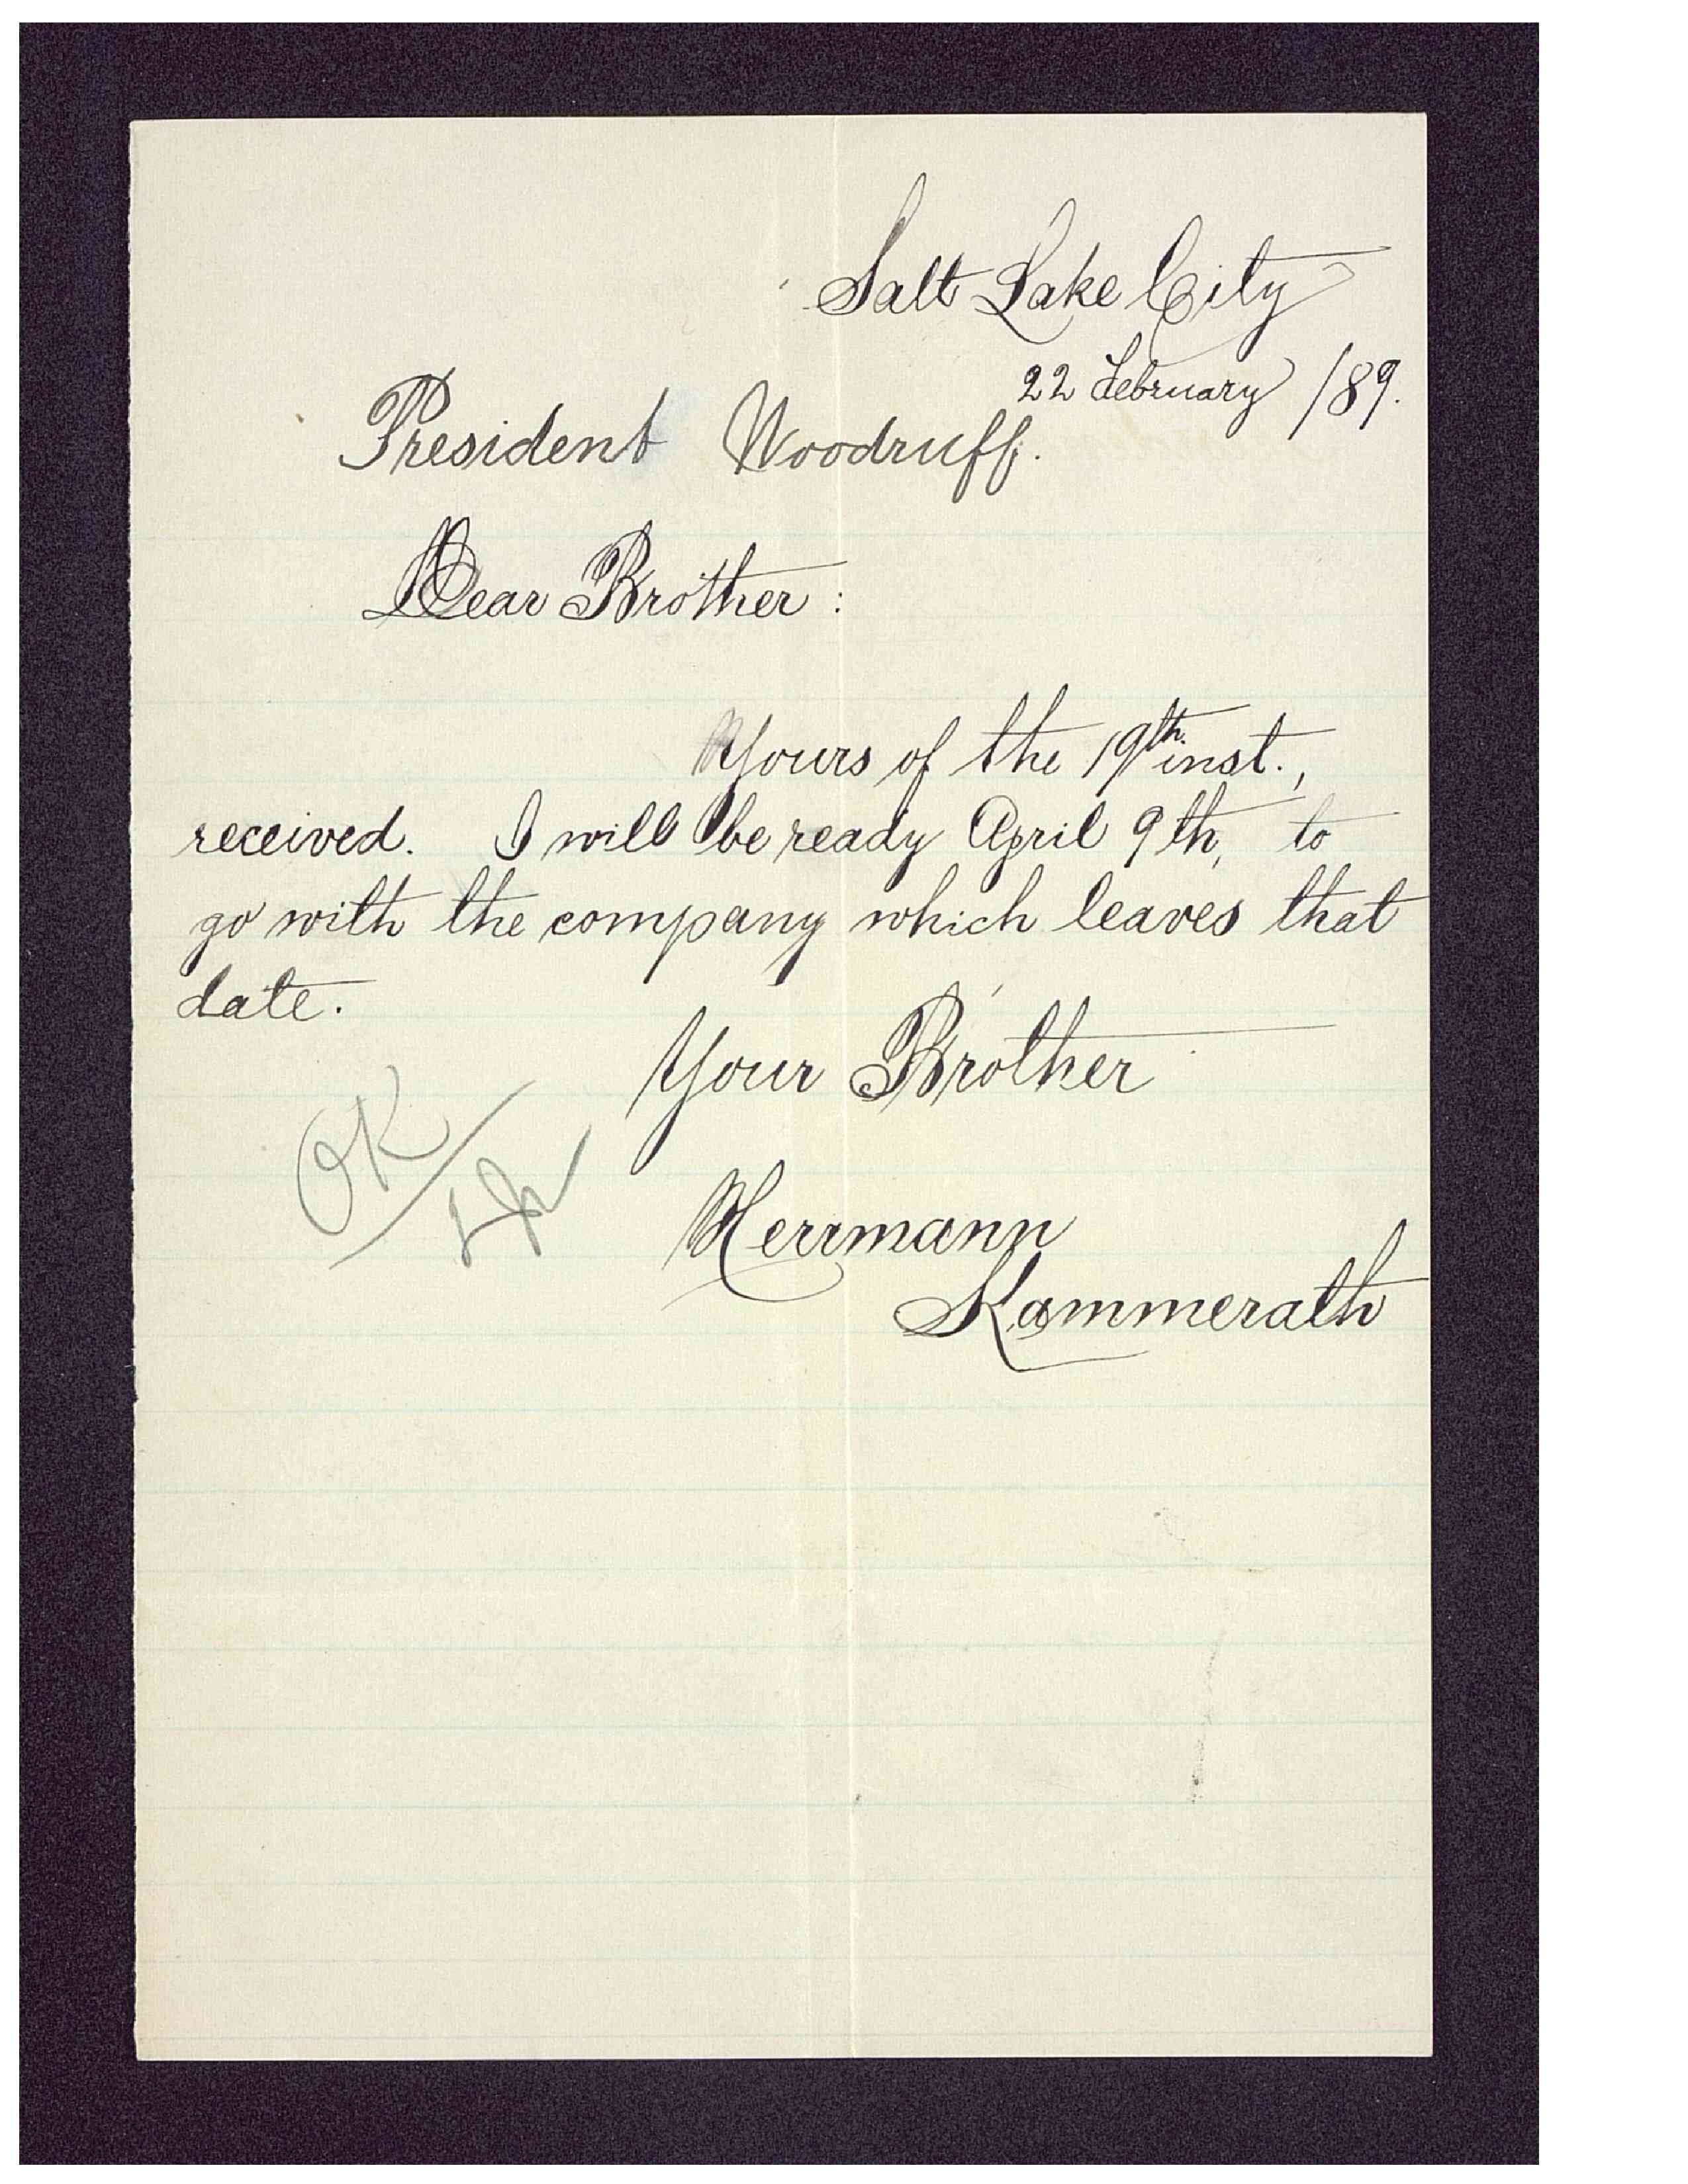 Salt Lake City
22 February /89.
President Woodruff.
Dear Brother :
Yours of the 19th. inst.,
received. I will be ready April 9th, to
go with the company which leaves that
date.
Your Brother
Herrmann
Kammerath
OK